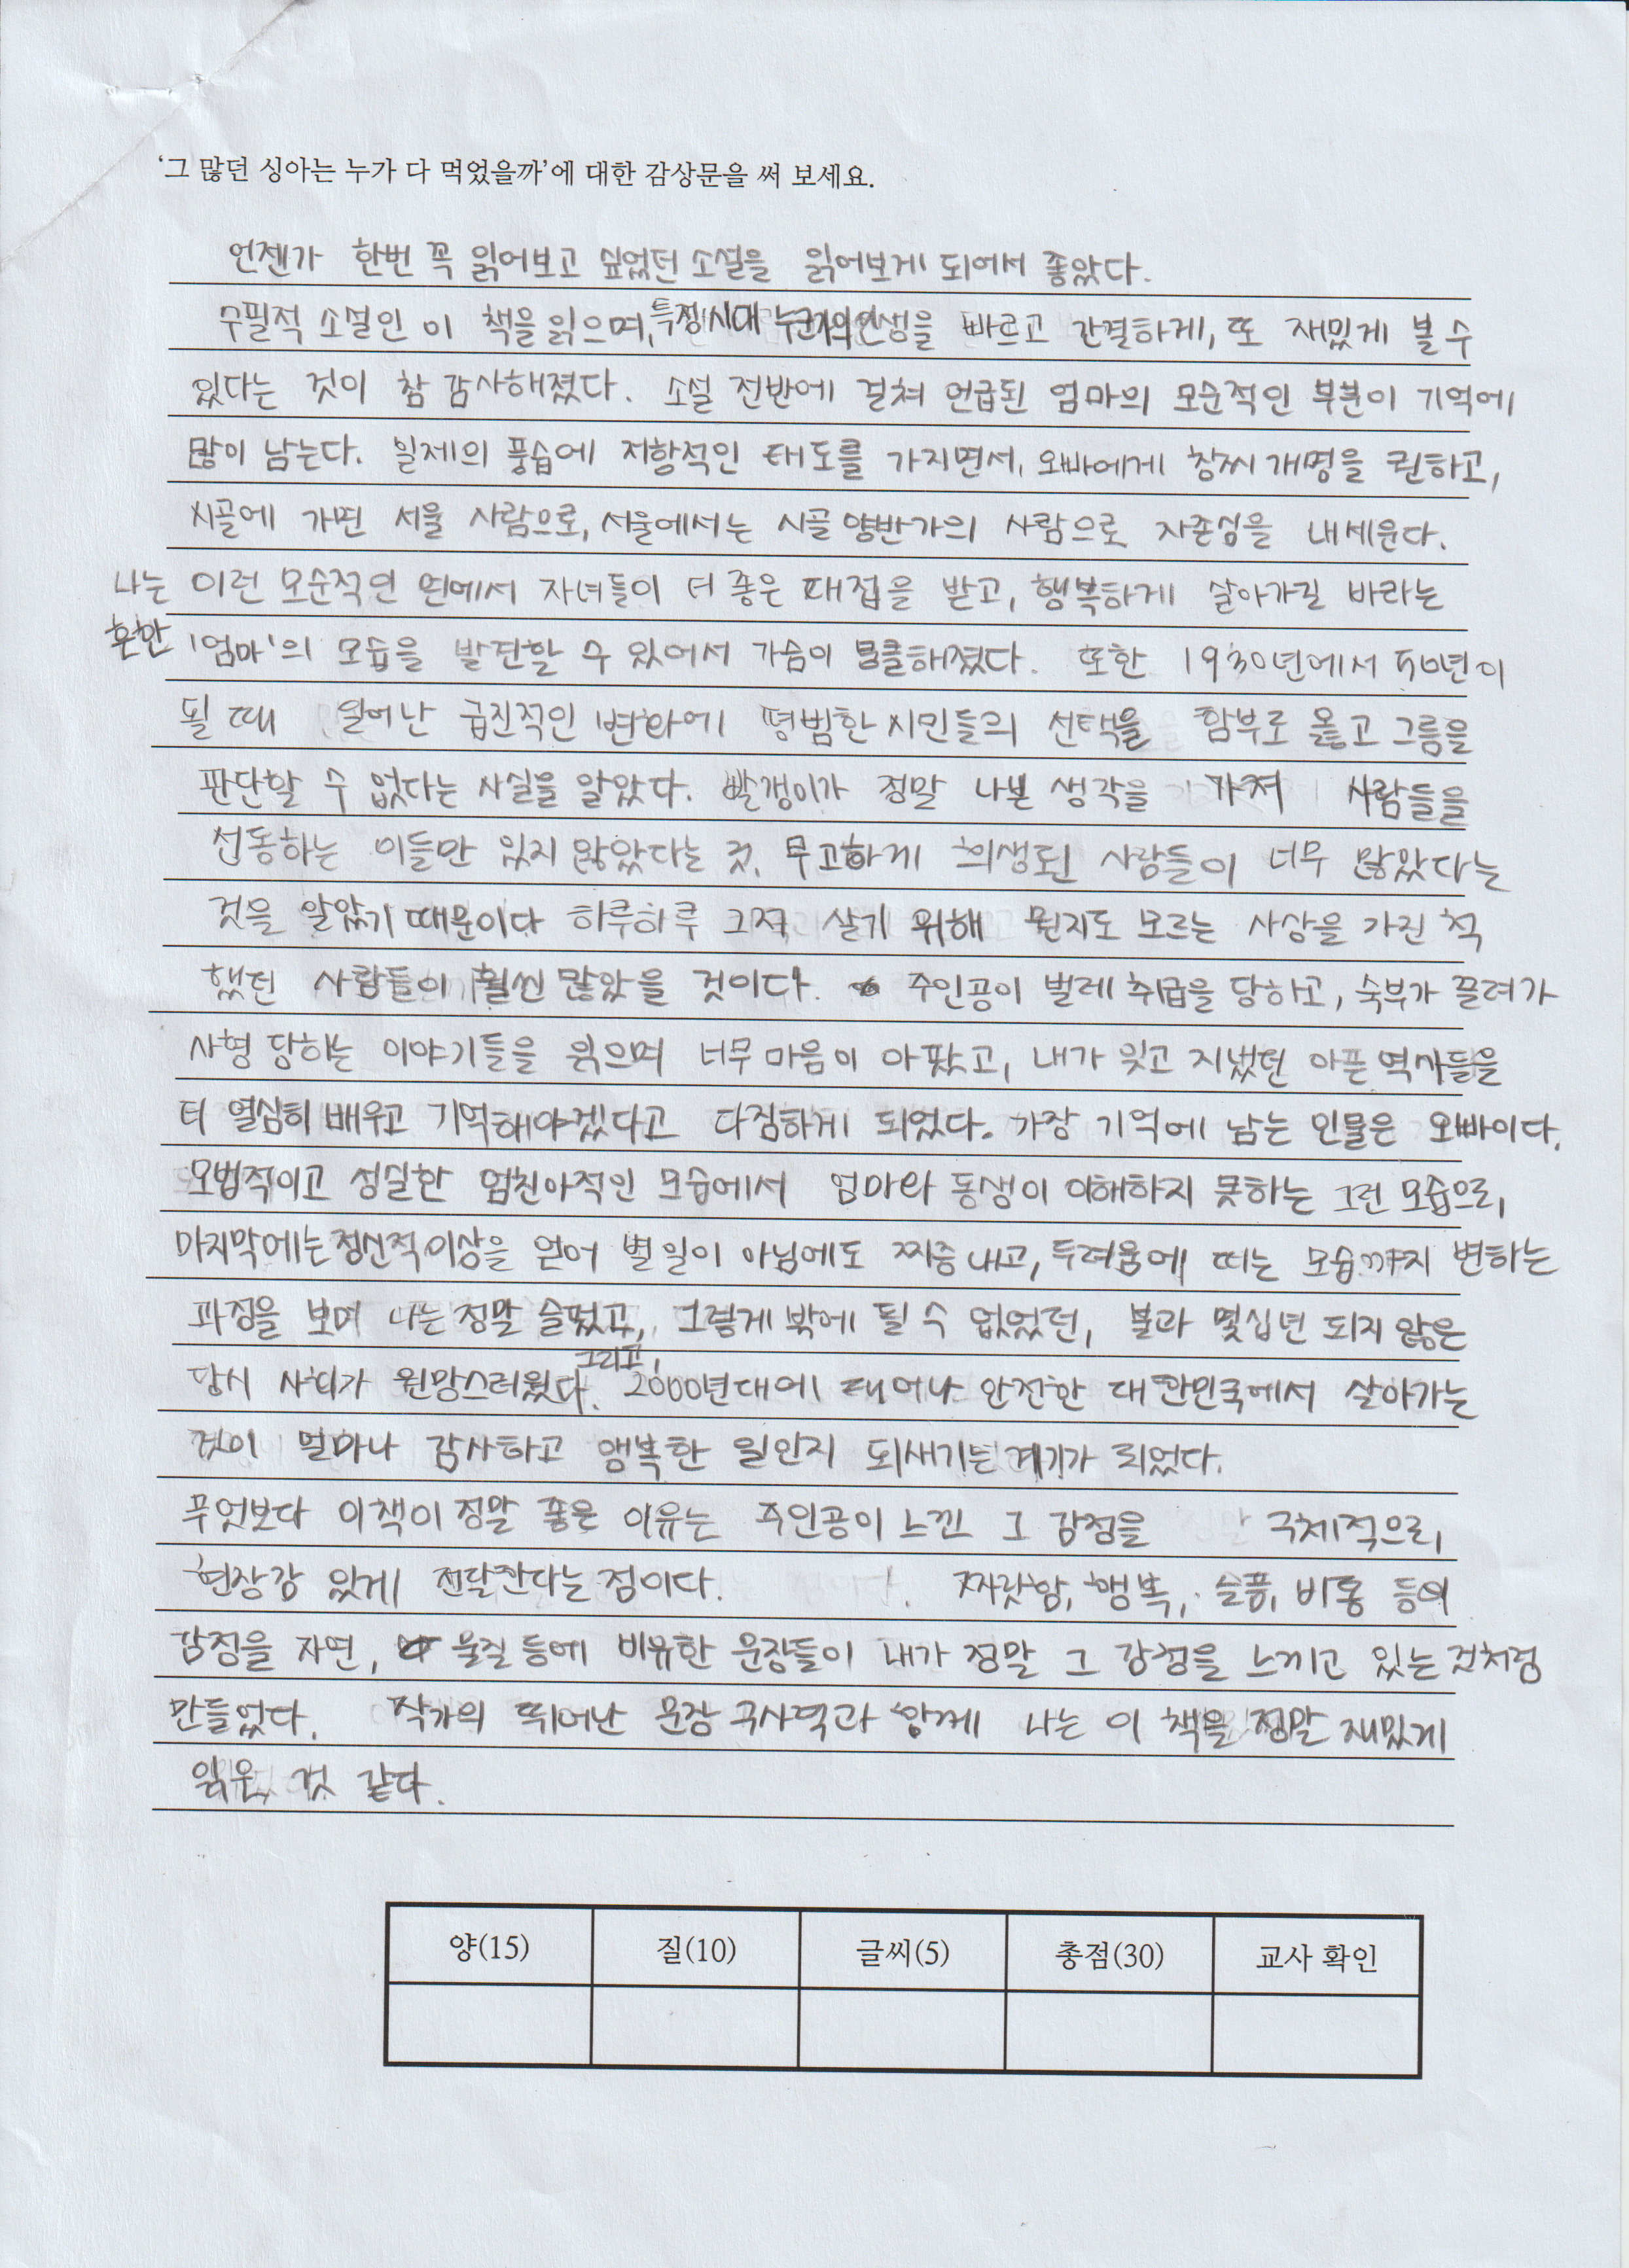 '그 많던 싱아는 누가 다 먹었을까'에 대한 감상문을 써 보세요.
언젠가 한번 꼭 읽어보고 싶었던 소설을 읽어보게 되어서 좋았다.
수필적 소설인 이 책을 읽으며, 특정 시대 누군가의 인생을 빠르고 간결하게, 또 재밌게 볼 수
있다는 것이 참 감사해졌다. 소설 전반에 걸쳐 언급된 엄마의 모순적인 부분이 기억에
많이 남는다. 일제의 풍습에 저항적인 태도를 가지면서, 오빠에게 창씨 개명을 권하고,
시골에 가면 서울 사람으로, 서울에서는 시골 양반가의 사람으로 자존심을 내세운다.
나는 이런 모순적인 면에서 자녀들이 더 좋은 대접을 받고, 행복하게 살아가길 바라는
흔한 '엄마'의 모습을 발견할 수 있어서 가슴이 뭉클해졌다. 또한 1930년에서 50년이
될 때 일어난 급진적인 변화에 평범한 시민들의 선택을 함부로 옳고 그름을
판단할 수 없다는 사실을 알았다. 빨갱이가 정말 나쁜 생각을 가져 사람들을
선동하는 이들만 있지 않았다는 것, 무고하게 희생된 사람들이 너무 많았다는
것을 알았기 때문이다 하루하루 그저 살기 위해 뭔지도 모르는 사상을 가진 척
했던 사람들이 훨씬 많았을 것이다. 주인공이 벌레 취급을 당하고, 숙부가 끌려가
사형 당하는 이야기들을 읽으며 너무 마음이 아팠고, 내가 잊고 지냈던 아픈 역사들을
더 열심히 배우고 기억해야겠다고 다짐하게 되었다. 가장 기억에 남는 인물은 오빠이다.
모범적이고 성실한 엄친아적인 모습에서 엄마와 동생이 이해하지 못하는 그런 모습으로,
마지막에는 정신적 이상을 얻어 별 일이 아님에도 짜증내고, 두려움에 떠는 모습까지 변하는
과정을 보며 나는 정말 슬펐고, 그렇게 밖에 될 수 없었던, 불과 몇십년 되지 않은
당시 사회가 원망스러웠다. 그리고, 2000년대에 태어나 안전한 대한민국에서 살아가는
것이 얼마나 감사하고 행복한 일인지 되새기는 계기가 되었다.
무엇보다 이책이 정말 좋은 이유는 주인공이 느낀 그 감정을 구체적으로,
현장감 있게 전달한다는 점이다. 짜릿함, 행복, 슬픔, 비통 등의
감정을 자연, 물질 등에 비유한 문장들이 내가 정말 그 감정을 느끼고 있는 것처럼
만들었다. 작가의 뛰어난 문장 구사력과 함께 나는 이 책을 정말 재밌게
읽은 것 같다.
양(15) 질(10) 글씨(5) 총점(30) 교사 확인